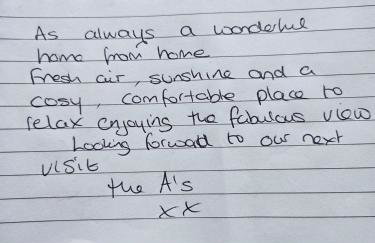 As always a wonderful
home from home
Fresh air, sunshine and a
cosy, comfortable place to
relax enjoying the fabulous view
Looking forward to our next
visit
the A's
xx